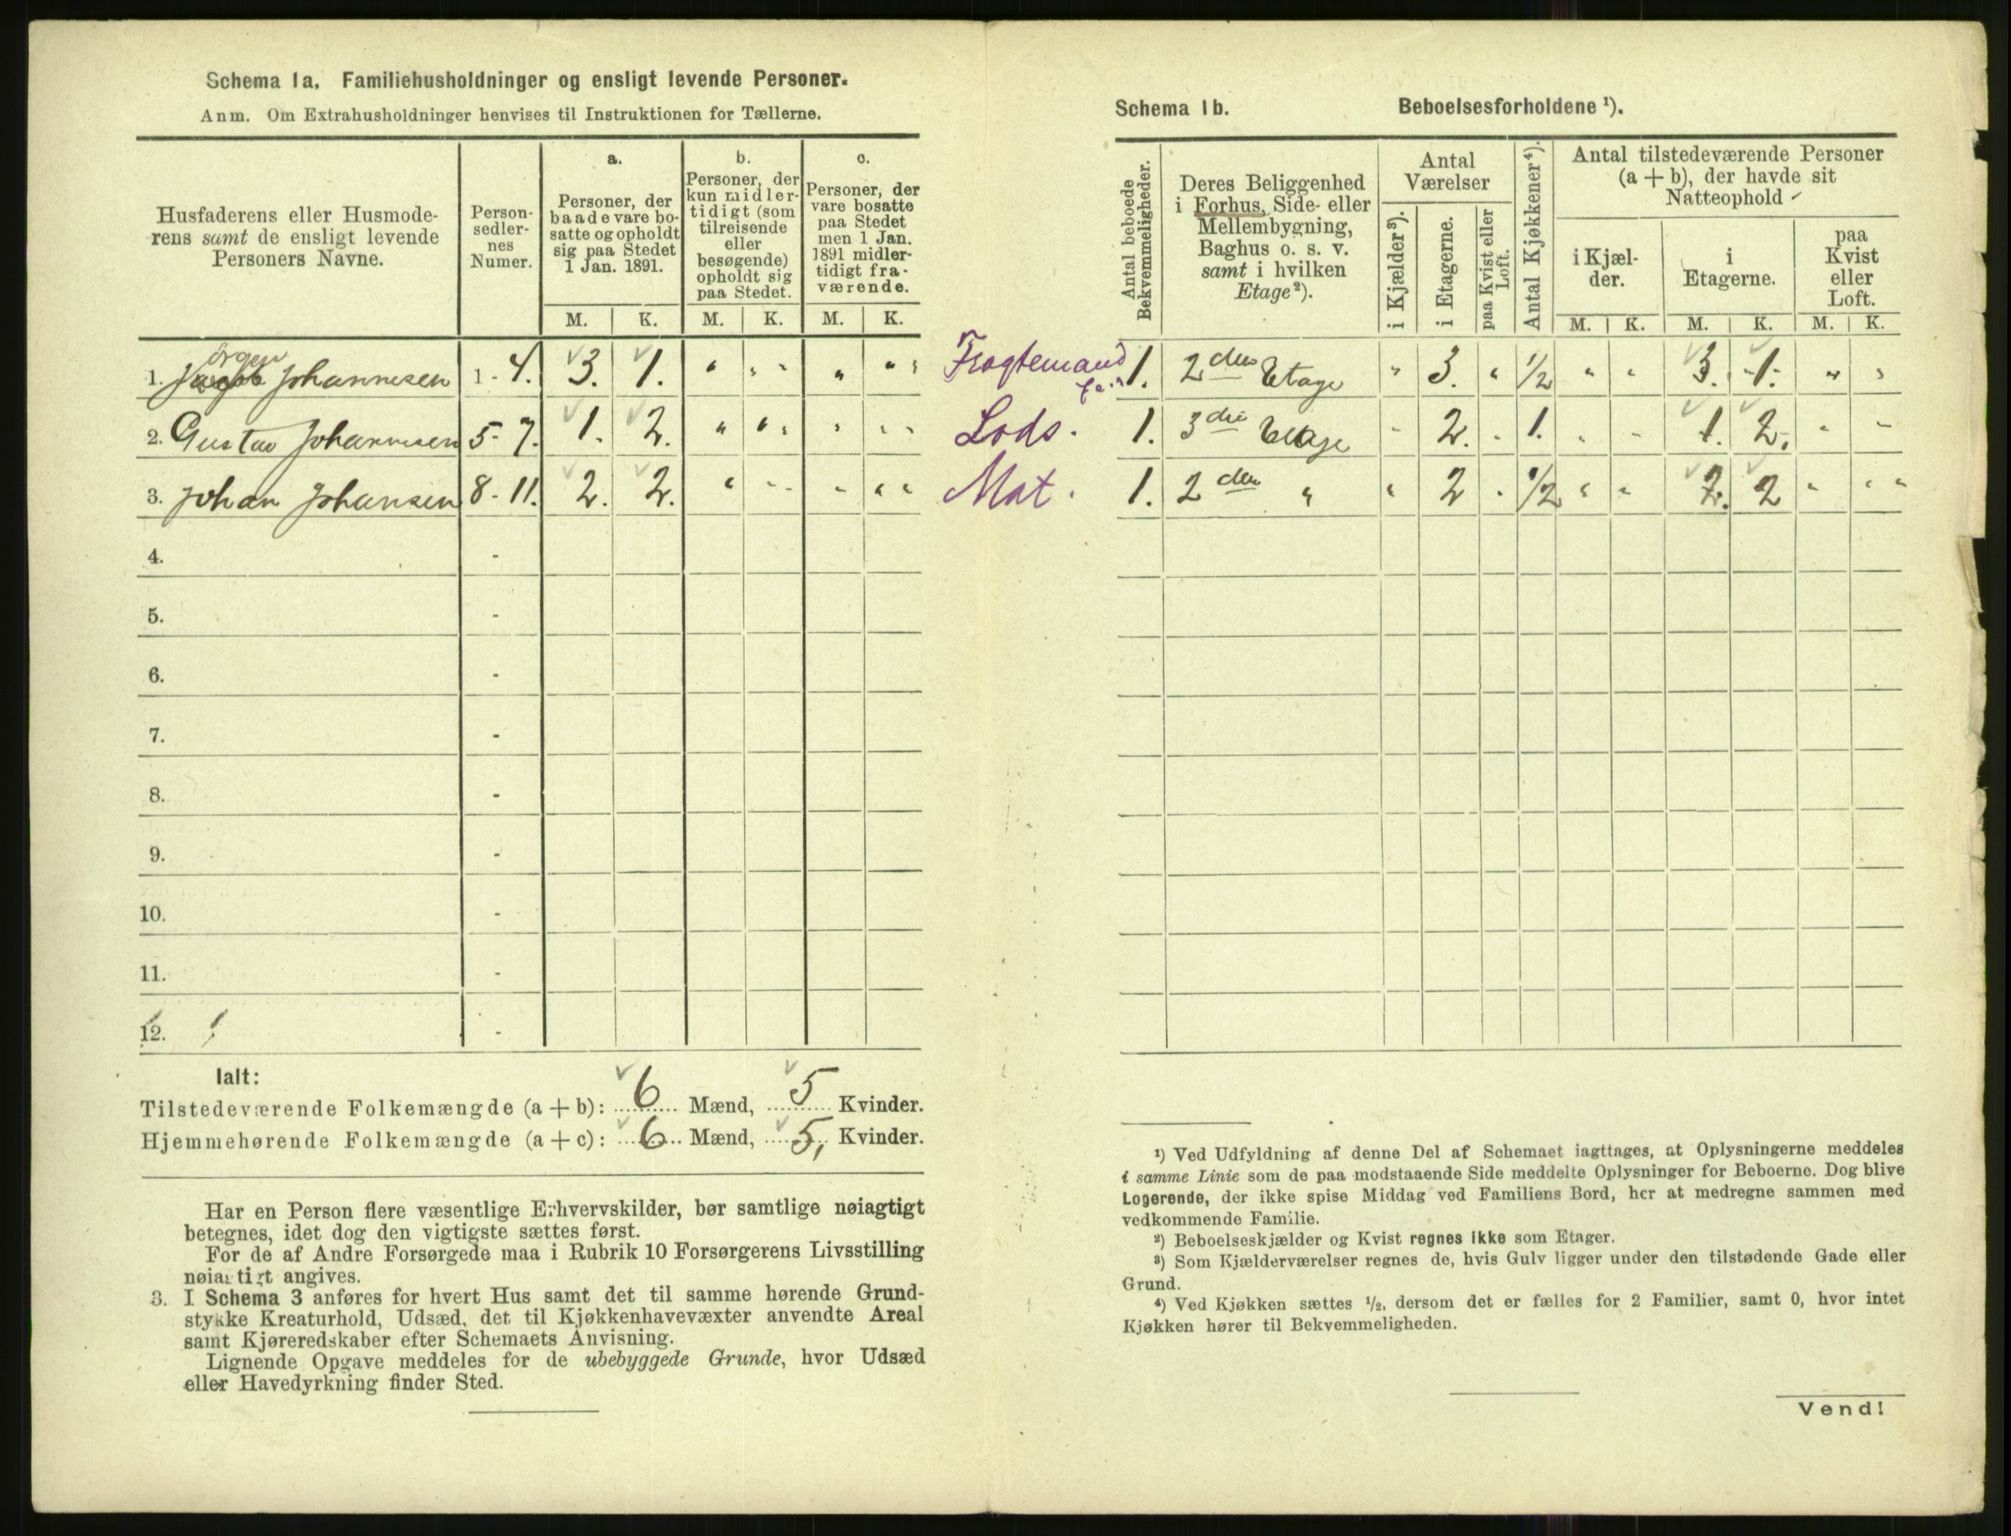 Schema 1a. Familiehusholdninger og ensligt levende Personer.
Anm. Om Extrahusholdninger henvises til Instruktionen for Tællerne.
Husfaderens eller Husmode-
rens samt de ensligt levende
Personers Navne.
Person-
sedler-
nes
Numer.
a.
Personer, der
baade vare bo-
satte og opholdt
sig paa Stedet
1 Jan. 1891.
b.
Personer, der
kun midler-
tidigt (som
tilreisende
eller
besøgende)
opholdt sig
paa Stedet.
c.
Personer, der
vare bosatte
paa Stedet
men 1 Jan.
1891 midler-
tidigt fra-
værende.
M. K. M. K. M. K.
1. Jørgen Johannesen 1 - 4. 3. 1. " " " " " "
2. Gustav Johannesen 5 - 7. 1. 2. " " " " " "
3. Johan Johansen 8 - 11. 2. 2. " " " " " "
4. -
5. -
6. -
7. -
8. -
9. -
10. -
11. -
12. -
Ialt:
Tilstedeværende Folkemængde (a + b): 6 Mænd, 5 Kvinder.
Hjemmehørende Folkemængde (a + c): 6 Mænd, 5, Kvinder.
Har en Person flere væsentlige Erhvervskilder, bør samtlige nøiagtigt
betegnes, idet dog den vigtigste sættes først.
For de af Andre Forsørgede maa i Rubrik 10 Forsørgerens Livsstilling
nøiagtigt angives.
3. I Schema 3 anføres for hvert Hus samt det til samme hørende Grund-
stykke Kreaturhold, Udsæd, det til Kjøkkenhavevæxter anvendte Areal
samt Kjøreredskaber efter Schemaets Anvisning.
Lignende Opgave meddeles for de ubebyggede Grunde, hvor Udsæd
eller Havedyrkning finder Sted.
Schema 1b. Beboelsesforholdene ¹).
Antal beboede
Bekvemmeligheder.
Deres Beliggenhed
i Forhus, Side- eller
Mellembygning,
Baghus o. s. v.
samt i hvilken
Etage²).
Antal
Værelser
i Kjælder³).
i Etagerne.
paa Kvist eller
Loft.
Antal Kjøkkener⁴).
Antal tilstedeværende Personer
(a + b), der havde sit
Natteophold
i Kjæl-
der.
i
Etagerne.
paa
Kvist
eller
Loft.
M. K. M. K. M. K.
Fragtemand 1. 2den Etage " 3. " 1/2 " " 3. 1. " "
Lods. 1. 3die Etage " 2. " 1. " " 1. 2. " "
Mat. 1. 2den " " 2 " 1/2 " " 2. 2 " "
¹) Ved Udfyldning af denne Del af Schemaet iagttages, at Oplysningerne meddeles
i samme Linie som de paa modstaaende Side meddelte Oplysninger for Beboerne. Dog blive
Logerende, der ikke spise Middag ved Familiens Bord, her at medregne sammen med
vedkommende Familie.
²) Beboelseskjælder og Kvist regnes ikke som Etager.
³) Som Kjælderværelser regnes de, hvis Gulv ligger under den tilstødende Gade eller
Grund.
⁴) Ved Kjøkken sættes ½, dersom det er fælles for 2 Familier, samt 0, hvor intet
Kjøkken hører til Bekvemmeligheden.
Vend!